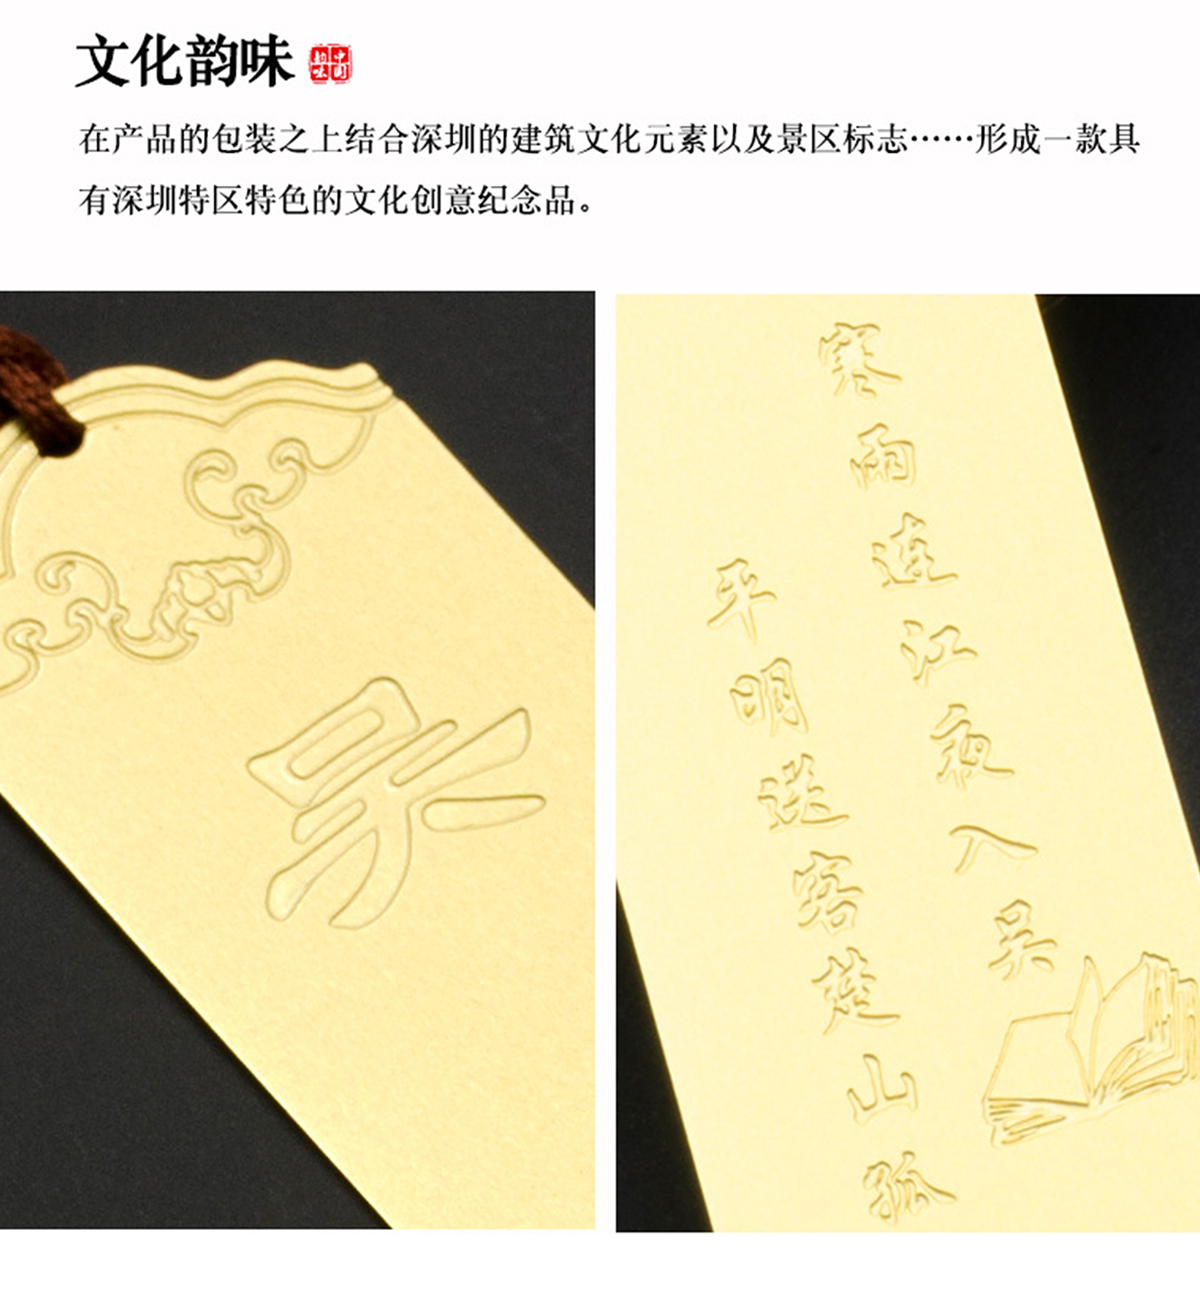 文化韵味
中国
韵味
在产品的包装之上结合深圳的建筑文化元素以及景区标志……形成一款具
有深圳特区特色的文化创意纪念品。
吴
寒雨连江夜入吴
平明送客楚山孤